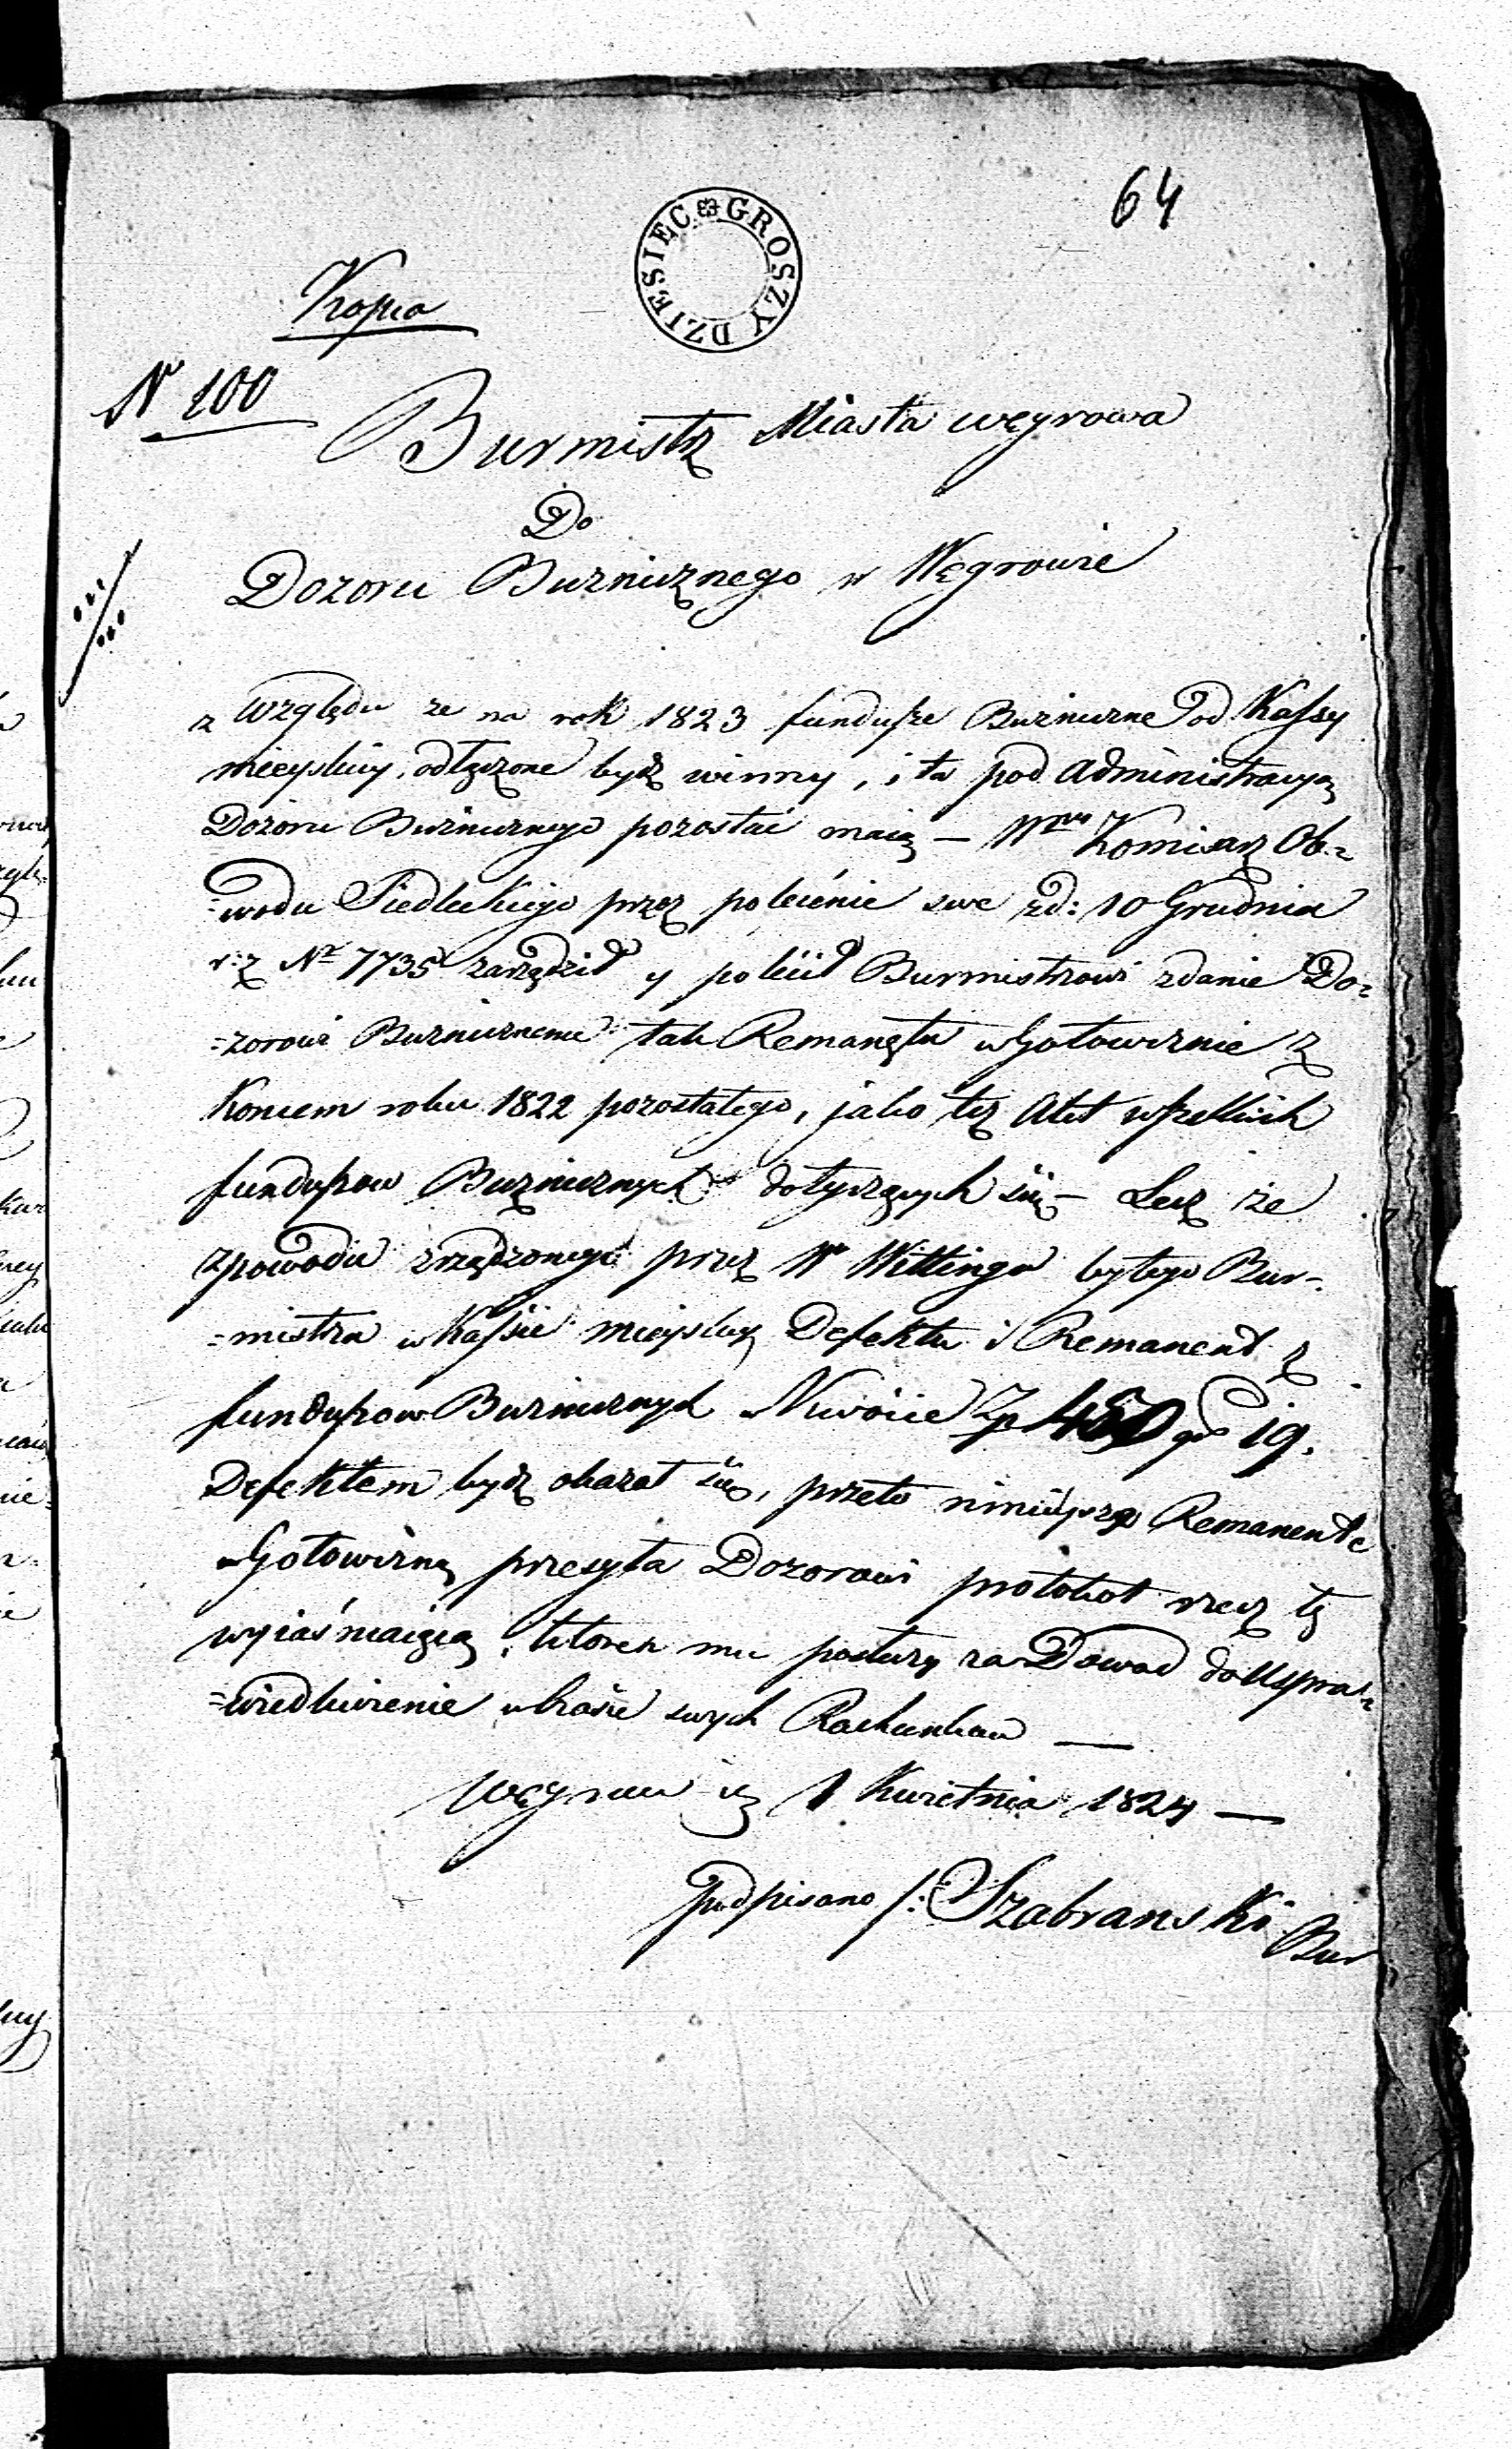 64
DZIESIĘC GROSZY
Kopia
N 100
Burmistrz Miasta węgrowa
Do
Dozoru Bużnicznego w Węgrowie
z Względu że na rok 1823 fundusze Bużniczne od Kassy
mieyskiey odłączone bydź winny, i ta pod Administracyą
Dozoru Bużnicznego pozostać maią — Wny Komisarz Ob=
=wodu Siedleckiego przez polecenie swe zd: 10 Grudnia
r: z Nr 7735 zarządził y polecił Burmistrzowi zdanie Do=
=zorowi Bużnicznemu tak Remanętu w Gotowiznie z
Koncem roku 1822 pozostałego, jako też Akt wszelkich
funduszow Bużnicznych dotyczących się — Lecz że
z powodu zrządzonego przez W Wittinga byłego Bur=
=mistrza w Kassie mieyskiey Defektu i Remanent z
funduszow Bużnicznych w Kwocie Zp 450 gr 19.
Defektem bydź okazał się, przeto ninieyszego Remanentu
w Gotowizną przesyła Dozorowi protokoł rzecz tę
wyiaśniaiącą, ktoren mu posłuży za Dowod do Uspra=
=wiedliwienie w czasie swych Rachunkow —
Węgrow dz 1 Kwietnia 1824 —
Podpisano /: Szabranski Bur